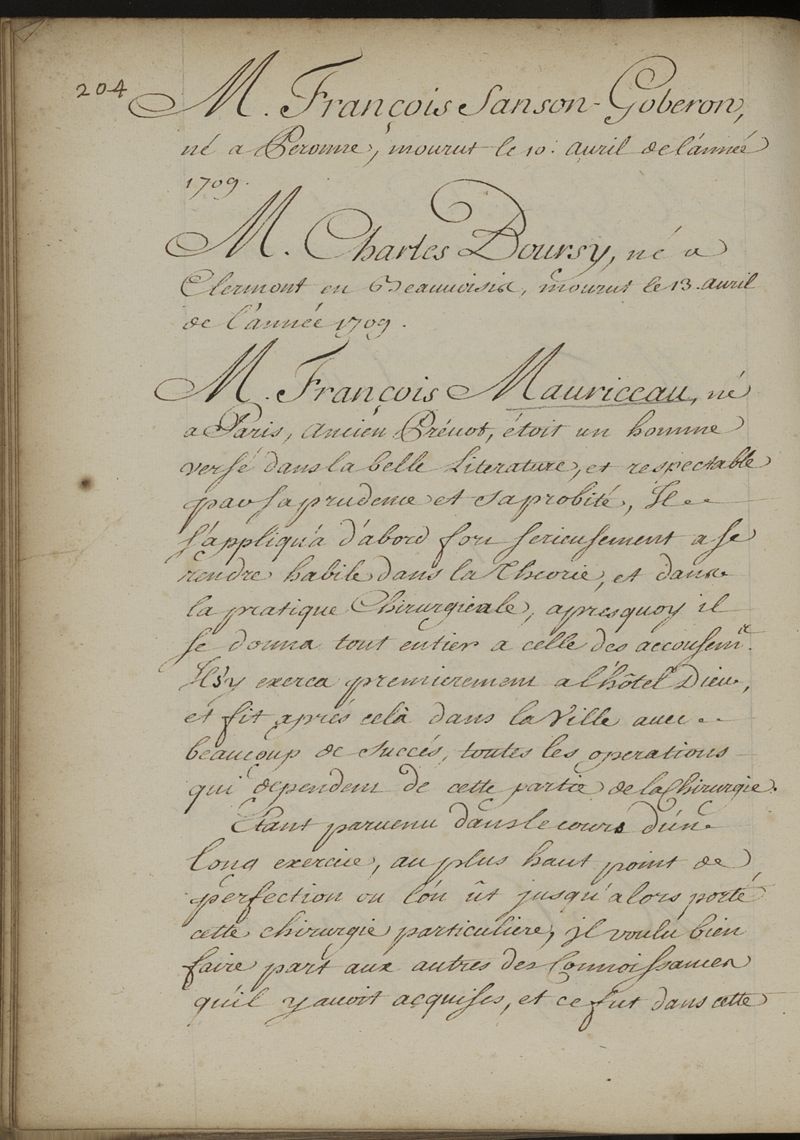 204
M. François Sanson-Goberon,
né a Peronne, mourut le 10. avril de l'année
1709.
M. Charles Doursy, né a
Clermont en Beauvoisis, mourut le 13. avril
de l'année 1709.
M. François Mauriceau, né
a Paris, Ancien Prévot, étoit un homme
versé dans la belle Literature, et respectable
par sa prudence et sa probité, Il
s'appliqua d'abord fort serieusement a se
rendre habile dans la Theorie, et dans
la pratique Chirurgicale, apres quoy il
se donna tout entier a celle des accousemts.
Il s'y exerca premierement a l'hôtel Dieu,
et fit aprés celà dans la Ville avec
beaucoup de succés, toutes les operations
qui dependent de cette partie de la Chirurgie.
Etant parvenu dans le cours d'un
long exercice, au plus haut point de
perfection ou l'on ût jusqu'alors porté
cette chirurgie particuliere, il voulu bien
faire part aux autres des Connoissances
qu'il y avoit acquises, et ce fut dans cette